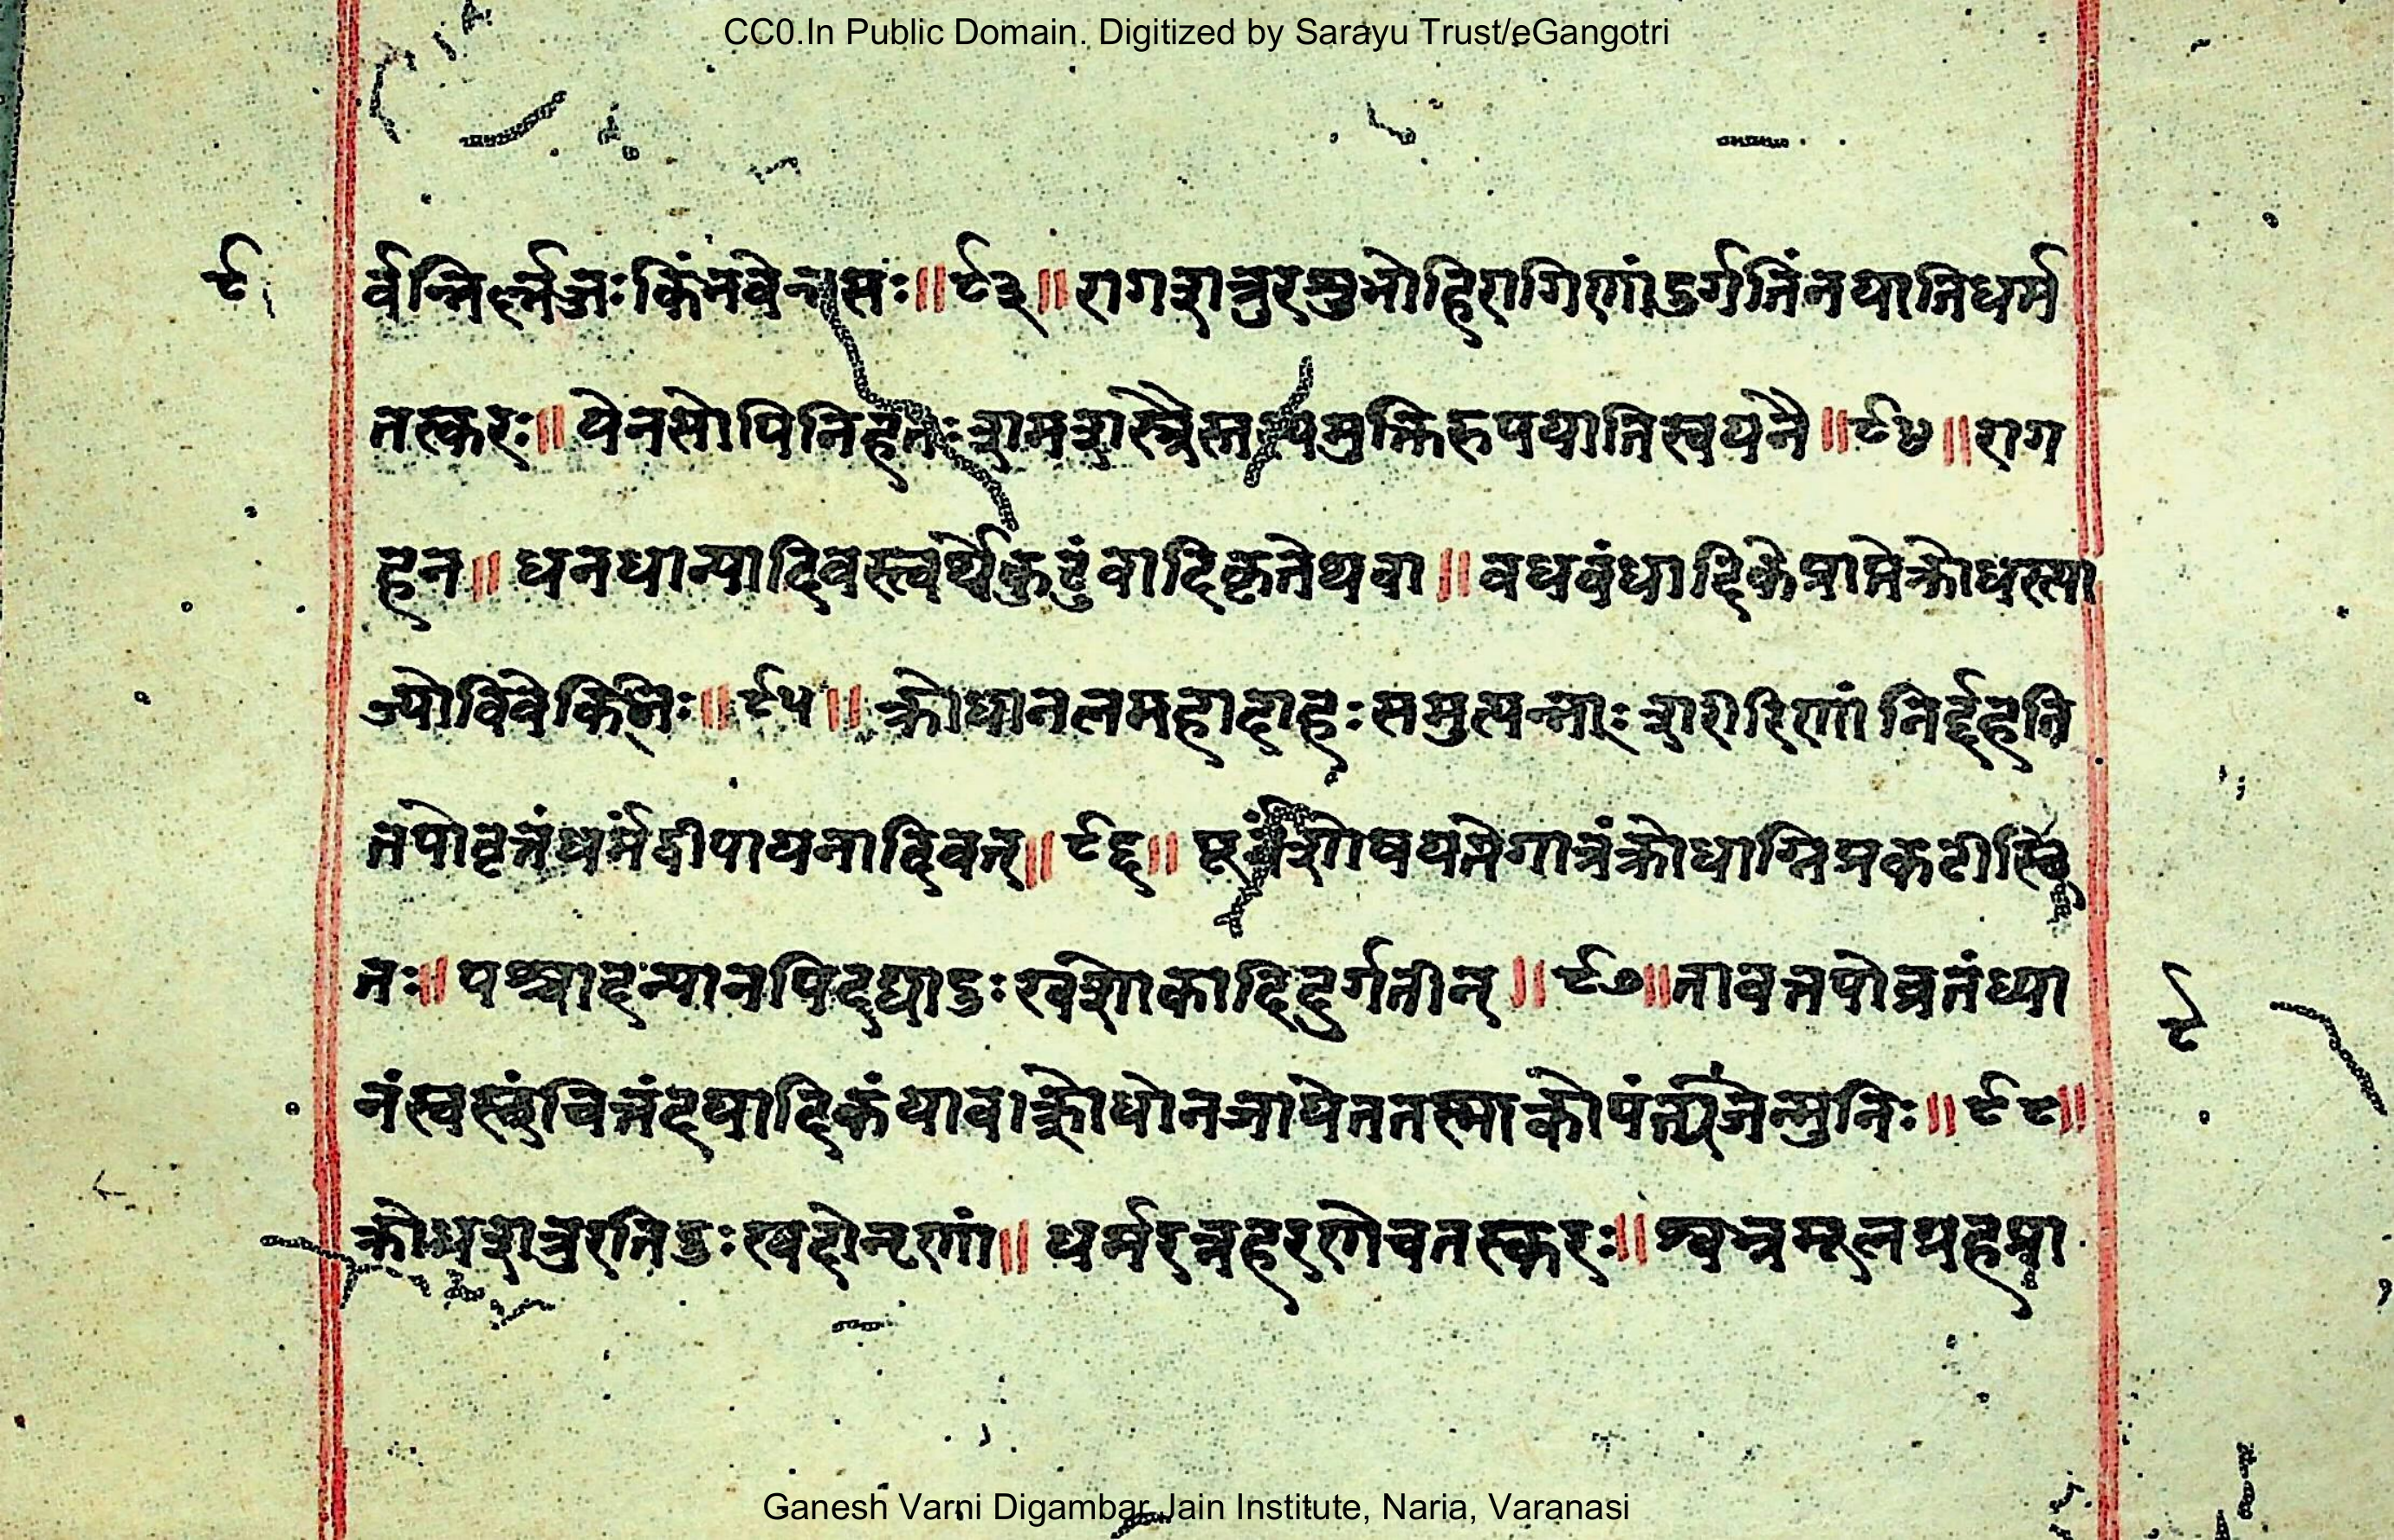 CC0.In Public Domain. Digitized by Sarayu Trust/eGangotri
९
र्वन्ति किंनवेन्नसः॥९३॥रागशत्रुरशुभोहिरागिणांदुर्गतिंनयातिधर्म
तस्करः॥येनसोपिनिहतःशमशस्त्रैस्तस्यमुक्तिरुपयातिस्वयनै॥९४॥राग
हन॥धनधान्यादिवस्त्वर्थेकुटुंवादिकृतेथवा॥वधवंधादिकेप्राप्तेक्रोधस्त्या
ज्योविवेकिभिः॥९५॥क्रोधानलमहादाहःसमुत्पन्नाःशरीरिणांनिर्द्दहति
तपोवृत्तंधर्मंदीपायनादिवत्॥९६॥ शोषयत्तेगात्रंक्रोधाग्निप्रकटी
तः॥पश्चादन्यानपिदद्याद्दुःखशोकादिदुर्गतीन्॥९७॥तावत्तपोव्रतंध्या
नंस्वस्छंचित्तंदयादिकंयावाक्रोधोनजायेततस्माकोपंत्यजेन्मुनिः॥९८॥
९
क्रोधशत्रुरतिदुःखदोनृणां॥धर्मरत्नहरणेचतस्करः॥श्वभ्रमूलग्रहप्रा
Ganesh Varni Digambar Jain Institute, Naria, Varanasi